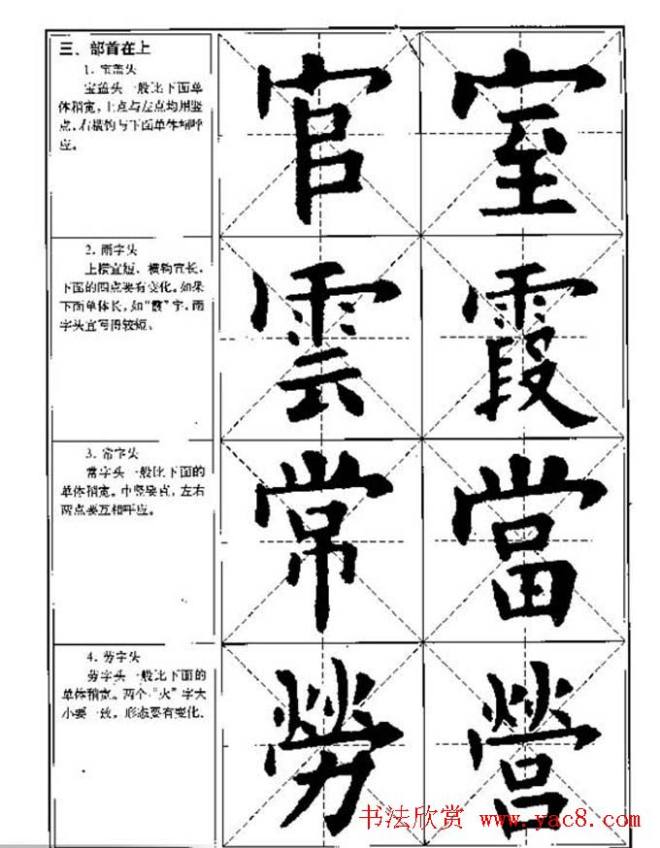 三、部首在上
1. 宝盖头
宝盖头一般比下面单
体稍宽,上点与左点均用竖
点,右横钩与下面单体相呼
应。
官 室
2. 雨字头
上横宜短,横钩宜长,
下面的四点要有变化。如果
下面单体长,如“霞”字,雨
字头宜写得较短。
雲 霞
3. 常字头
常字头一般比下面的
单体稍宽。中竖要点,左右
两点要互相呼应。
常 當
4. 劳字头
劳字头一般比下面的
单体稍宽。两个“火”字大
小要一致,形态要有变化.
勞 營
书法欣赏 www.yac8.com